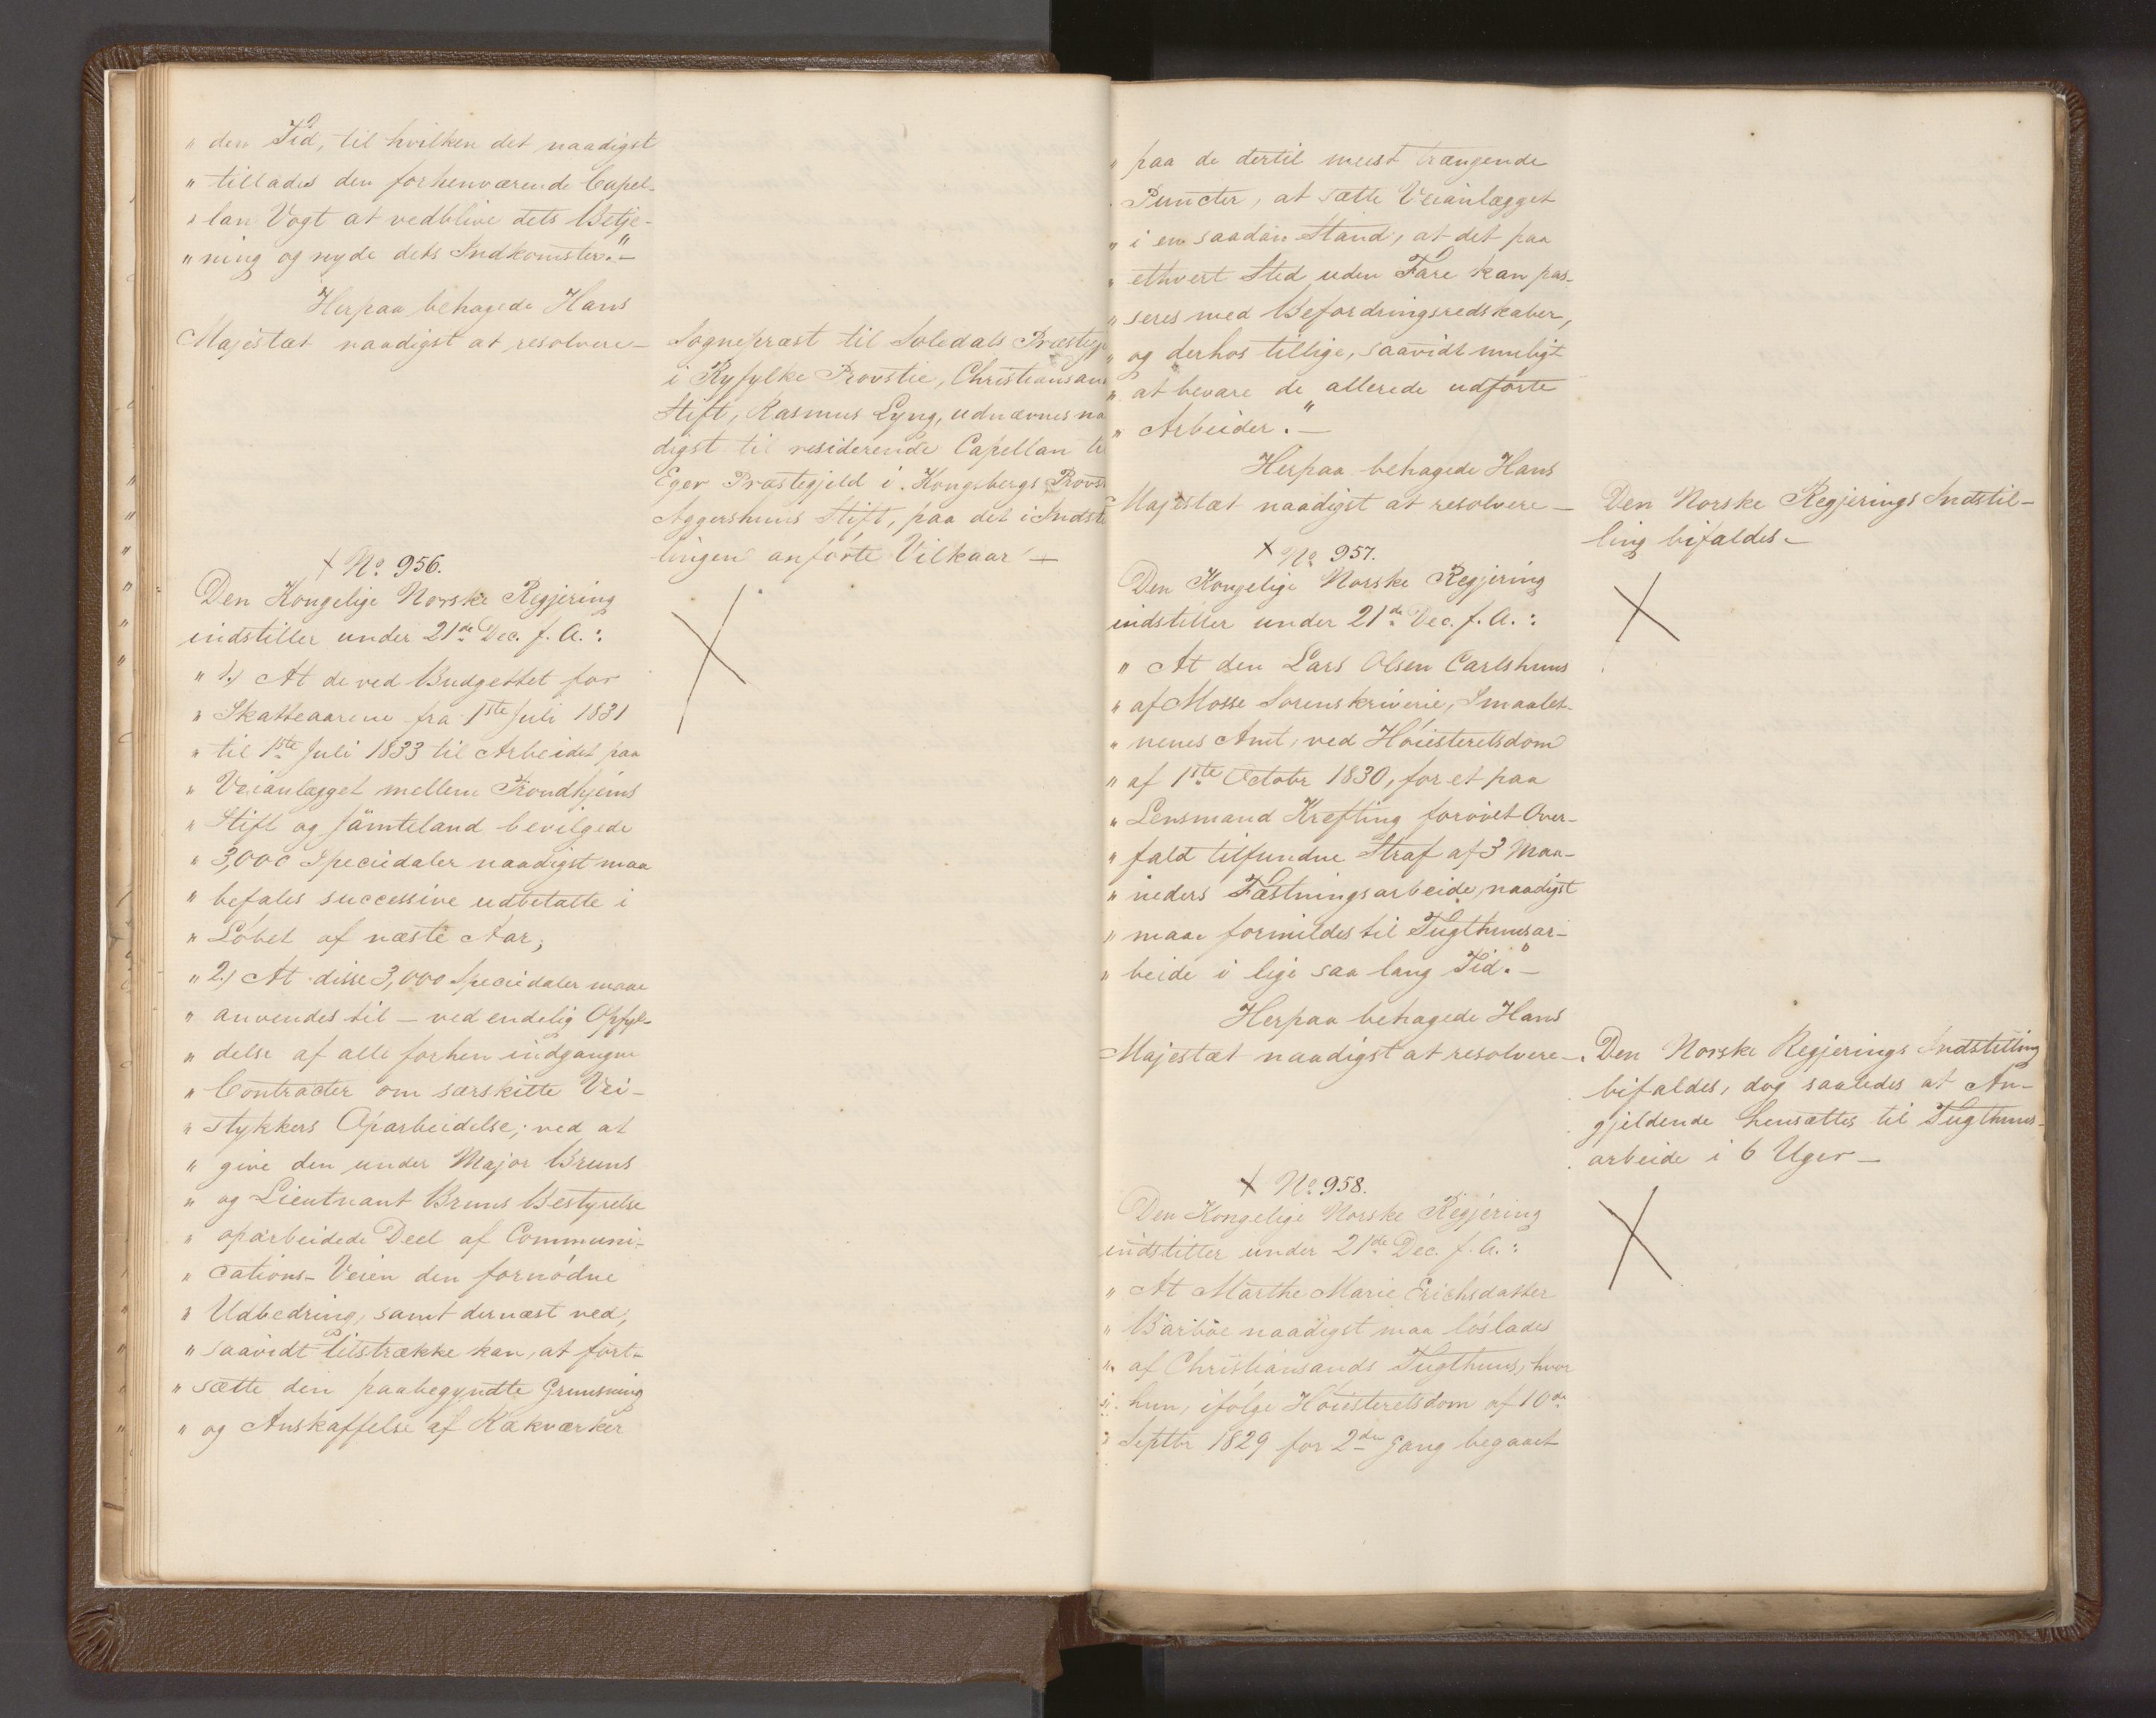 " den Tid, til hvilken det naadigst
" tillades den forhenværende Capel-
" lan Vogt at vedblive dets Betje-
" ning og nyde dets Indkomster." –
Herpaa behagede Hans
Majestæt naadigst at resolvere –
Sognepræst til Soledals Præstegj
i Ryfylke Provstie, Christiansan
Stift, Rasmus Lyng, udnævnes na
digst til residerende Capellan ti
Eger Præstegjeld i Kongsbergs Provs
Aggershuus Stift, paa det i Indsti
lingen anførte Vilkaar –
+ No. 956.
Den Kongelige Norske Regjering
indstiller under 21de Dec. f. A.:
" 1.) At de ved Budgettet for
" Skatteaarene fra 1ste Juli 1831
" til 1ste Juli 1833 til Arbeidet paa
" Veianlægget mellem Trondhjems
" Stift og Jämteland bevilgede
" 3,000 Speciedaler naadigst maa
" befales successive udbetalte i
" Løbet af næste Aar;
" 2.) At disse 3,000 Speciedaler maae
" anvendes til – ved endelig Opfyl-
" delse af alle forhen indgangne
" Contracter om særskilte Vei-
" stykkers Oparbeidelse; ved at
" give den under Major Bruns
" og Lieutnant Bruns Bestyrelse
" oparbeidede Deel af Communi-
" cations-Veien den fornødne
" Udbedring, samt dernæst ved,
" saavidt tilstrække kan, at fort-
" sætte den paabegyndte Gruusning
" og Anskaffelse af Rækværker
" paa de dertil meest trængende
" Puncter, at sætte Veianlægget
" i en saadan Stand, at det paa
" ethvert Sted uden Fare kan pas-
" seres med Befordringsredskaber,
" og derhos tillige, saavidt muligt
" at bevare de allerede udførte
" Arbeider." –
Herpaa behagede Hans
Majestæt naadigst at resolvere –
Den Norske Regjerings Indstil-
ling bifaldes. –
+ No. 957.
Den Kongelige Norske Regjering
indstiller under 21de Dec. f. A.:
" At den Lars Olsen Carlshuus
" af Mosse Sorenskriverie, Smaaleh-
" nenes Amt, ved Høiesteretsdom
" af 1ste Octobr 1830, for et paa
" Lensmand Krefting forøvet Over-
" fald tilfundne Straf af 3 Maa-
" neders Fæstningsarbeide, naadigst
" maae formildes til Tugthuusar-
" beide i lige saa lang Tid." –
Herpaa behagede Hans
Majestæt naadigst at resolvere –
Den Norske Regjerings Indstilling
bifaldes, dog saaledes at An-
gjeldende hensættes til Tugthuus-
arbeide i 6 Uger –
+ No. 958.
Den Kongelige Norske Regjering
indstiller under 21de Dec. f. A.:
" At Marthe Marie Erichsdatter
" Barbøe naadigst maa løslades
" af Christiansands Tugthuus, hvor
" hun, ifølge Høiesteretsdom af 10de
" Septbr 1829 for 2den Gang begaaet